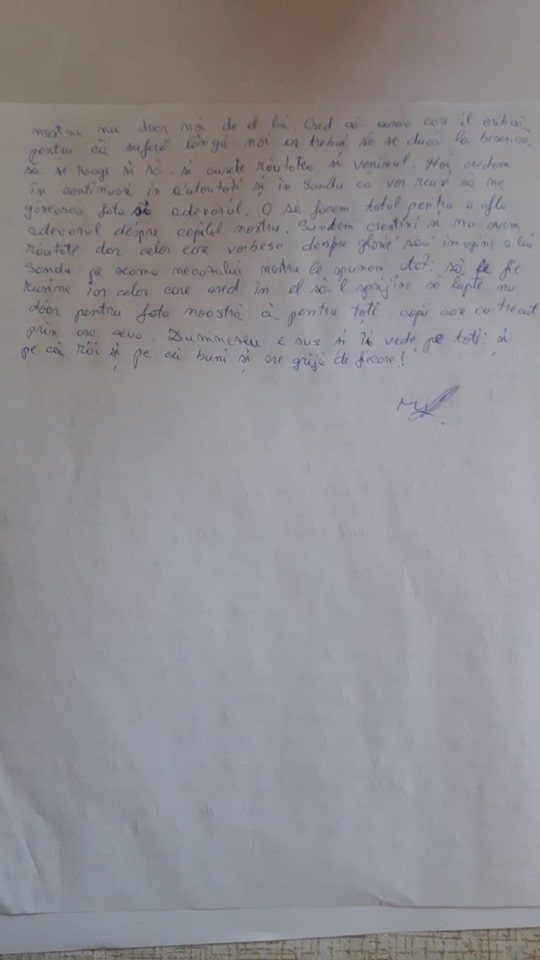 nostru nu doar mă de el lui. Cred că acea care îl
pentru că suferă lângă noi ar trebui să se ducă la biserică
să se roage și să-și curețe răutatea și veninul. Noi credem
în continuare în autorități și în Sandu că vor reuși să ne
găsească fata să adevărul. O să facem totul pentru a afla
adevărul despre copilul nostru. Suntem creștini și nu avem
răutate dar celor care vorbesc despre glorie sau imagine a lui
Sandu pe seama necazului nostru le spunem atât: să le fie
rușine iar celor care cred în el să-l sprijine că luptă nu
doar pentru fata noastră ci pentru toți copii care au trecut
prin așa ceva. Dumnezeu e sus și îi vede pe toți: și
pe cei răi și pe cei buni și are grijă de fiecare!